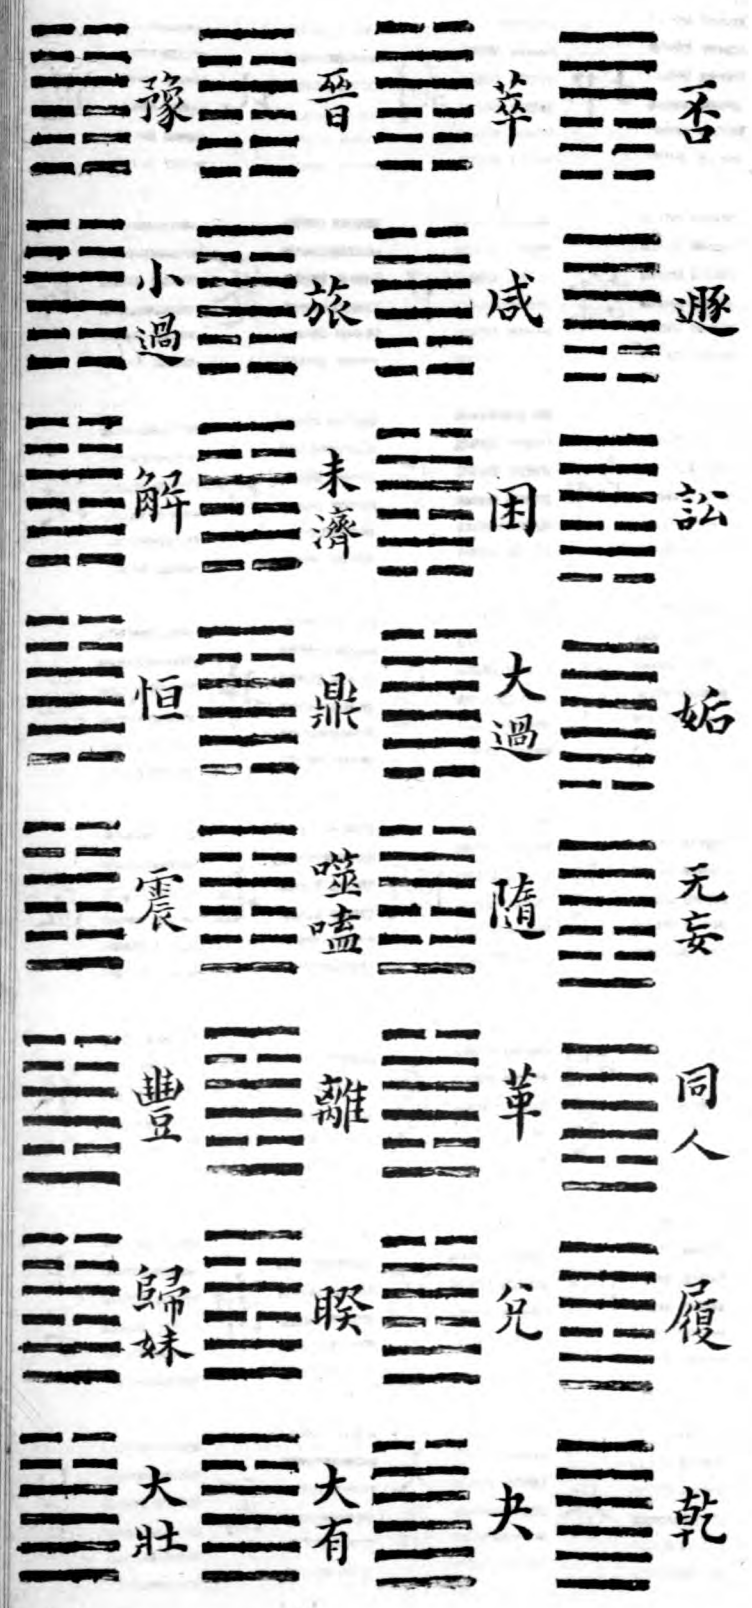 否
遯
訟
姤
无妄
同人
履
乾
萃
咸
困
大過
隨
革
兌
夬
晉
旅
未濟
鼎
噬嗑
離
睽
大有
豫
小過
解
恒
震
豐
歸妹
大壯